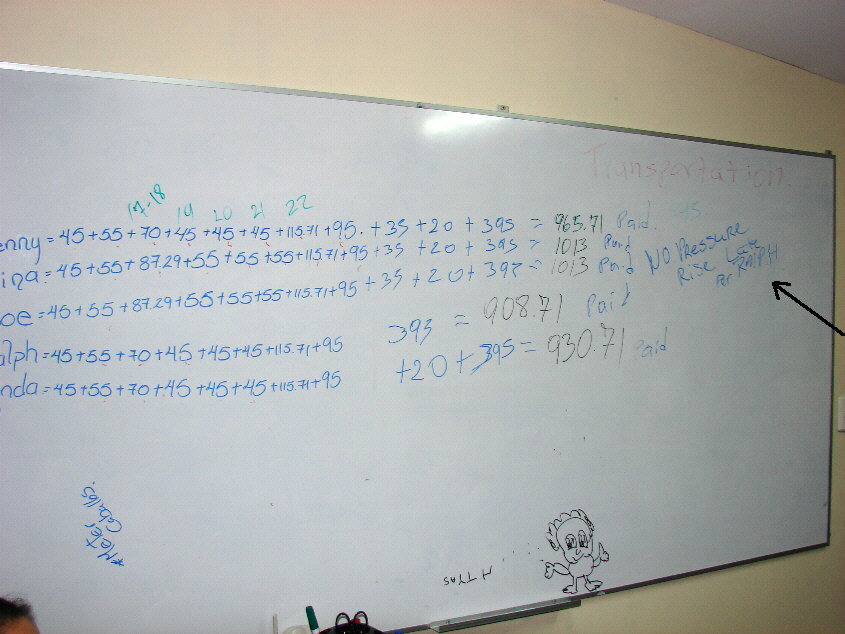 Transportation.
17-18 19 20 21 22
enny = 45+55+70+45+45+45+115.71+95.+35+20+395 = 965.71 Paid. 95
ina = 45+55+87.29+55+55+55+115.71+95+35+20+395 = 1013 Paid
oe = 45+55+87.29+55+55+55+115.71+95+35+20+395 = 1013 Paid
NO Pressure
Rise Late
Por RALPH
alph = 45+55+70+45+45+45+115.71+95 393 = 908.71 Paid
nda = 45+55+70+45+45+45+115.71+95 +20+395 = 930.71 Paid
*Meter